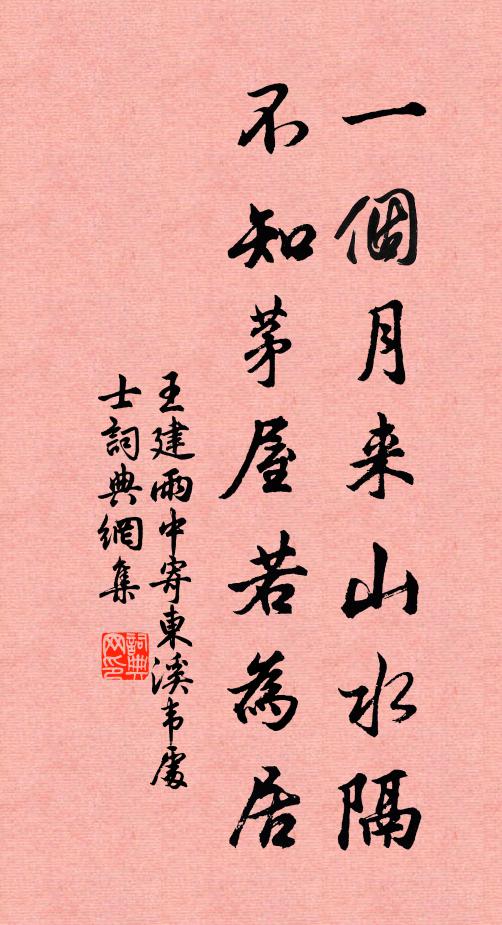 一個月来山水隔
不知茅屋若為居
王建雨中寄東溪韦處
士詞典網集
詞典
网印